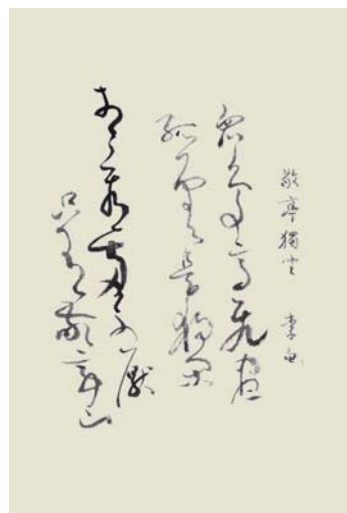 敬亭獨坐 李白
眾鳥高飛盡
孤雲去獨閑
相看兩不厭
只有敬亭山